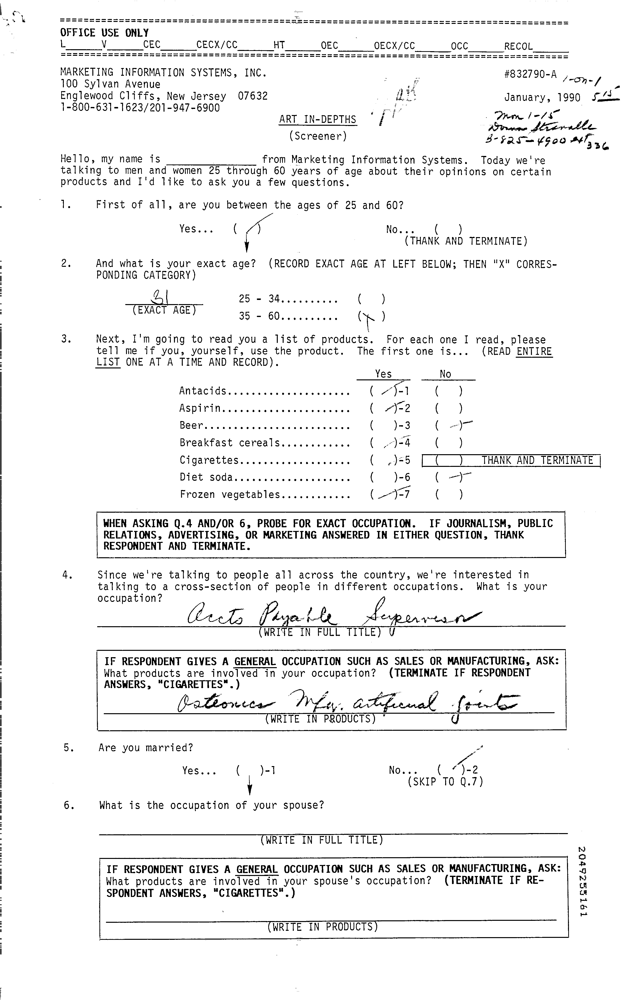 OFFICE USE ONLY
L____V____CEC____CECX/CC____HT____OEC____OECX/CC____OCC____RECOL____
MARKETING INFORMATION SYSTEMS, INC. #832790-A 1-on-1
100 Sylvan Avenue
Englewood Cliffs, New Jersey 07632 January, 1990 5:15
1-800-631-1623/201-947-6900
Mon 1-15
ART IN-DEPTHS
Donna
(Screener)
3-825-4900 ext 336
Hello, my name is ______________ from Marketing Information Systems. Today we're
talking to men and women 25 through 60 years of age about their opinions on certain
products and I'd like to ask you a few questions.
1. First of all, are you between the ages of 25 and 60?
Yes... ( ) No... ( )
(THANK AND TERMINATE)
2. And what is your exact age? (RECORD EXACT AGE AT LEFT BELOW; THEN "X" CORRES-
PONDING CATEGORY)
31 25 - 34.......... ( )
(EXACT AGE) 35 - 60.......... ( )
3. Next, I'm going to read you a list of products. For each one I read, please
tell me if you, yourself, use the product. The first one is... (READ ENTIRE
LIST ONE AT A TIME AND RECORD).
Yes No
Antacids..................... ( )-1 ( )
Aspirin...................... ( )-2 ( )
Beer......................... ( )-3 ( )
Breakfast cereals............ ( )-4 ( )
Cigarettes................... ( )-5 ( ) THANK AND TERMINATE
Diet soda.................... ( )-6 ( )
Frozen vegetables............ ( )-7 ( )
WHEN ASKING Q.4 AND/OR 6, PROBE FOR EXACT OCCUPATION. IF JOURNALISM, PUBLIC
RELATIONS, ADVERTISING, OR MARKETING ANSWERED IN EITHER QUESTION, THANK
RESPONDENT AND TERMINATE.
4. Since we're talking to people all across the country, we're interested in
talking to a cross-section of people in different occupations. What is your
occupation?
Accts Payable Supervisor
(WRITE IN FULL TITLE)
IF RESPONDENT GIVES A GENERAL OCCUPATION SUCH AS SALES OR MANUFACTURING, ASK:
What products are involved in your occupation? (TERMINATE IF RESPONDENT
ANSWERS, "CIGARETTES".)
Osteonics Mfg. artificial joints
(WRITE IN PRODUCTS)
5. Are you married?
Yes... ( )-1 No... ( )-2
(SKIP TO Q.7)
6. What is the occupation of your spouse?
(WRITE IN FULL TITLE)
IF RESPONDENT GIVES A GENERAL OCCUPATION SUCH AS SALES OR MANUFACTURING, ASK:
What products are involved in your spouse's occupation? (TERMINATE IF RE-
SPONDENT ANSWERS, "CIGARETTES".)
(WRITE IN PRODUCTS)
2049255161